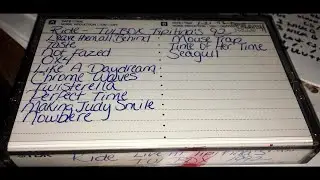 Ride - TWBOX Trpositions 92
Leave them all Behind
Taste
Not Fazed
OX4
Like A Daydream
Chrome Waves
Twisterella
Perfect Time
Making Judy Smile
Nowhere
Mouse Trap
Time of Her Time
Seagull
Ride Live At